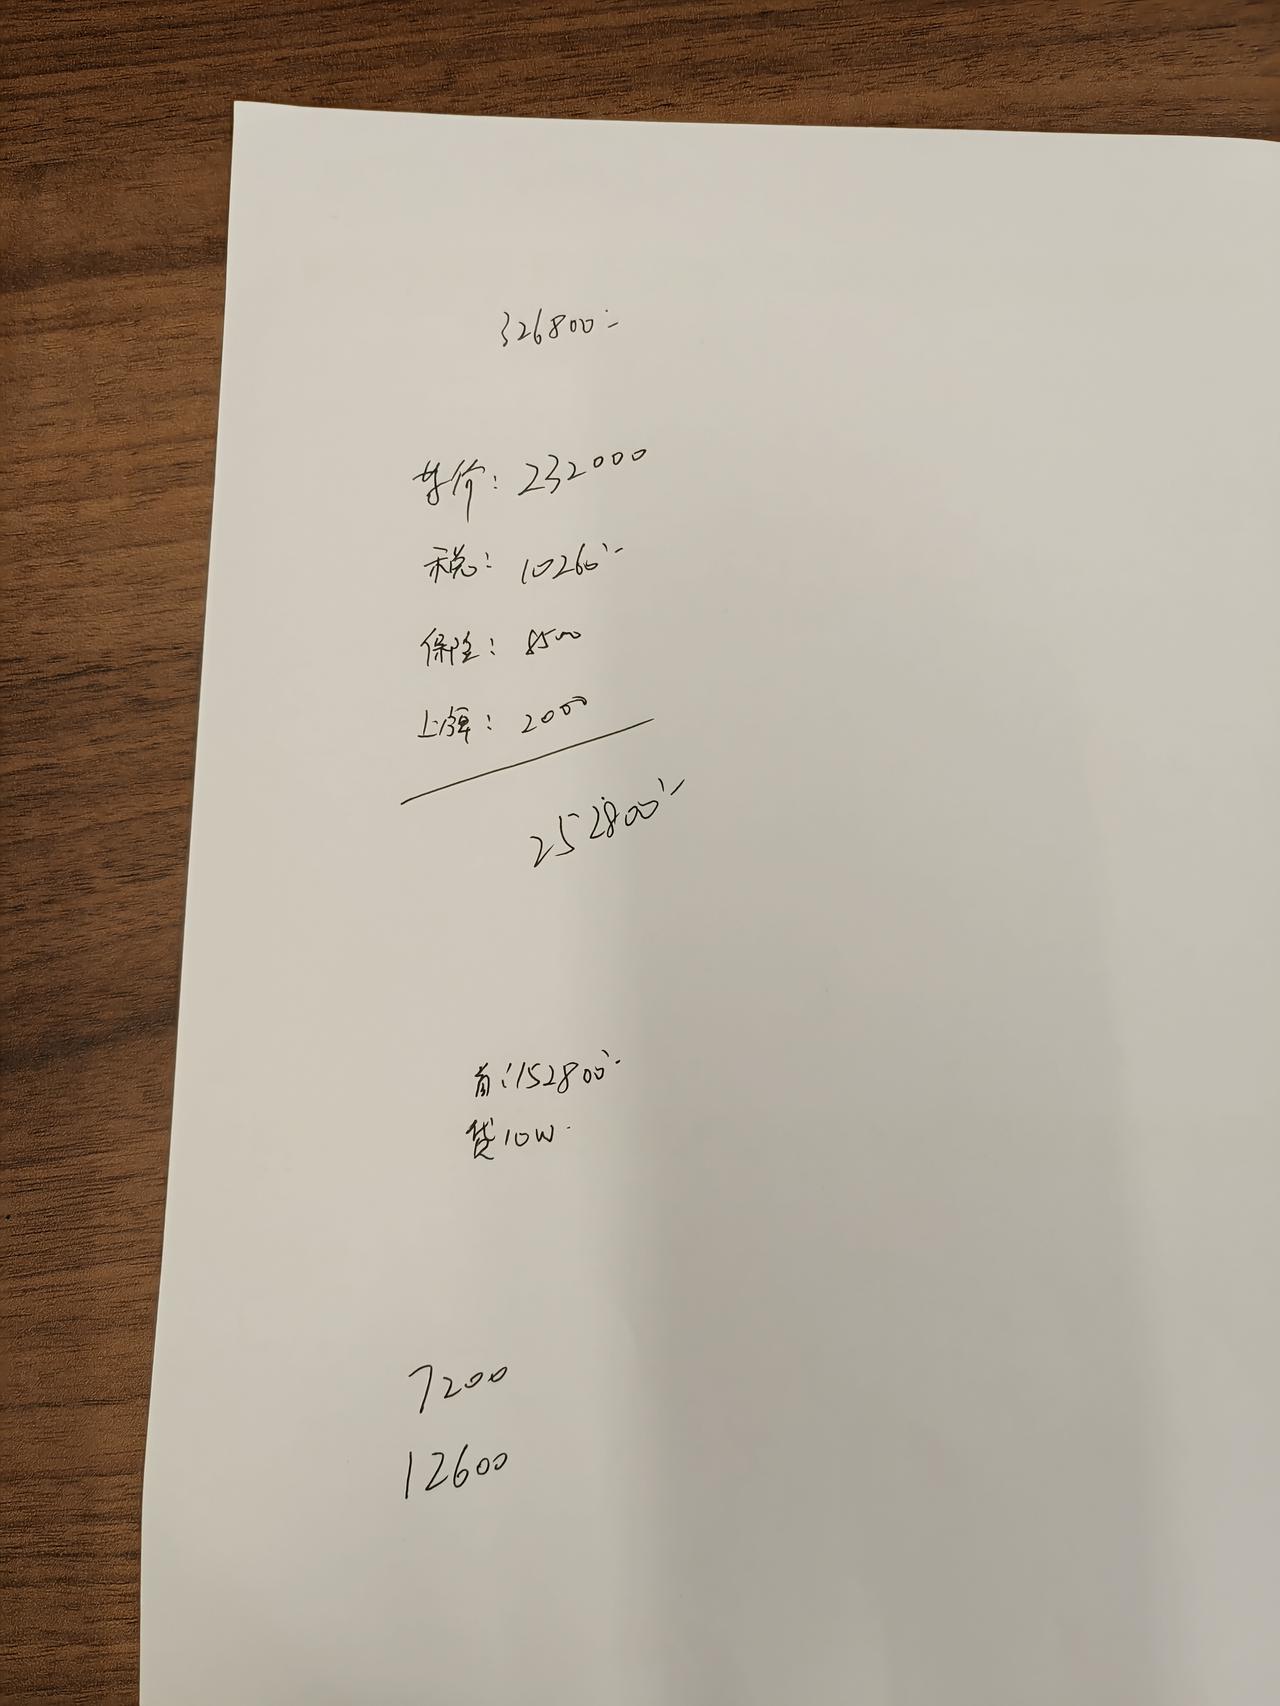 326800:-
车价: 232000
税: 10260:-
保险: 8500
上牌: 2000
252800:-
首:152800:-
贷10W.
7200
12600